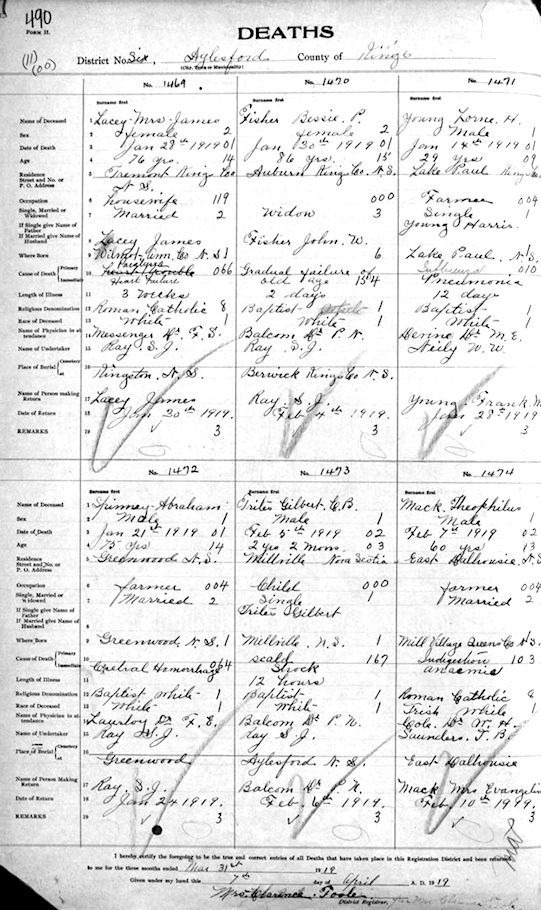 490
FORM H.
DEATHS
District No. Six, Aylesford County of Kings
(City, Town or Municipality)
No. 1469 No. 1470 No. 1471
Surname first Surname first Surname first
Name of Deceased 1 Lacey Mrs. James Fisher Bessie P. Young Lorne H.
Sex 2 Female 2 female 2 Male 1
Date of Death 3 Jan 28th 1919 01 Jan 30th 1919 01 Jan 14th 1919 01
Age 4 76 yrs. 14 86 yrs. 15 29 yrs 09
Residence Street and No. or P. O. Address 5 Tremont Kings Co N.S. Auburn Kings Co. N.S. Lake Paul Kings Co
Occupation 6 housewife 119 000 Farmer 004
Single, Married or Widowed 7 Married 2 Widow 3 Single 1
If Single give Name of Father Young Harris
If Married give Name of Husband 8 Lacey James Fisher John W.
Where Born 9 Wilmot Ann. Co N.S 1 6 Lake Paul N.S. 1
Cause of Death Primary 10 Paralysis 066 Gradual failure of 154 Influenza 010
Immediate Heart Failure old age Pneumonia
Length of Illness 11 3 Weeks 2 days 12 days
Religious Denomination 12 Roman Catholic 8 Baptist 1 Baptist 1
Race of Deceased 13 White 1 White 1 White 1
Name of Physician in attendance 14 Messenger Dr. F. S. Balcom Dr P. N. Dr M. E.
Name of Undertaker 15 Ray S. J. Ray S. J. Neily W. W.
Place of Burial Cemetery 16 Kingston N.S. Berwick Kings Co N.S.
Name of Person making Return 17 Lacey James Ray S. J. Young Frank M
Date of Return 18 Jan 30th 1919. Feb 4th 1919. Jan 28th 1919
REMARKS 19 3 3 3
No. 1472 No. 1473 No. 1474
Surname first Surname first Surname first
Name of Deceased 1 Abraham Trites Gilbert C. B. Mack Theophilus
Sex 2 Male 1 Male 1 Male 1
Date of Death 3 Jan 21st 1919 01 Feb 5th 1919 02 Feb 7th 1919 02
Age 4 75 yrs 14 2 yrs 2 mons 03 60 yrs 13
Residence Street and No. or P. O. Address 5 Greenwood N.S. Millville Nova Scotia East Dalhousie, N.S
Occupation 6 farmer 004 Child 000 farmer 004
Single, Married or Widowed 7 Married 2 Single 1 Married 2
If Single give Name of Father Trites Gilbert
If Married give Name of Husband
Where Born 9 Greenwood, N.S. 1 Millville, N.S. 1 Mill Village Queens Co N.S. 1
Cause of Death Primary 10 scald 167 Indigestion 103
Immediate Hemorrhage 064 Shock anaemia
Length of Illness 12 hours
Religious Denomination 12 Baptist White 1 Baptist 1 Roman Catholic 8
Race of Deceased 13 White 1 White 1 Irish White 1
Name of Physician in attendance 14 Dr F. E. Balcom Dr P. N. Cole Dr W. H.
Name of Undertaker 15 Ray S. J. Ray S J. Saunders T. B.
Place of Burial Cemetery 16 Greenwood Aylesford N.S. East Dalhousie
Name of Person Making Return 17 Ray, S. J. Balcom Dr P. N. Mack Mrs
Date of Return 18 Jan 24 1919. Feb. 6th 1919. Feb 10th 1919
REMARKS 19 3 3 3
I hereby certify the foregoing to be true and correct entries of all Deaths that have taken place in this Registration District and been returned
to me for the three months ended Mar 31st 1919
Given under my hand this 7th day of April A. D. 1919
Mrs. Clarence Toole
District Registrar,